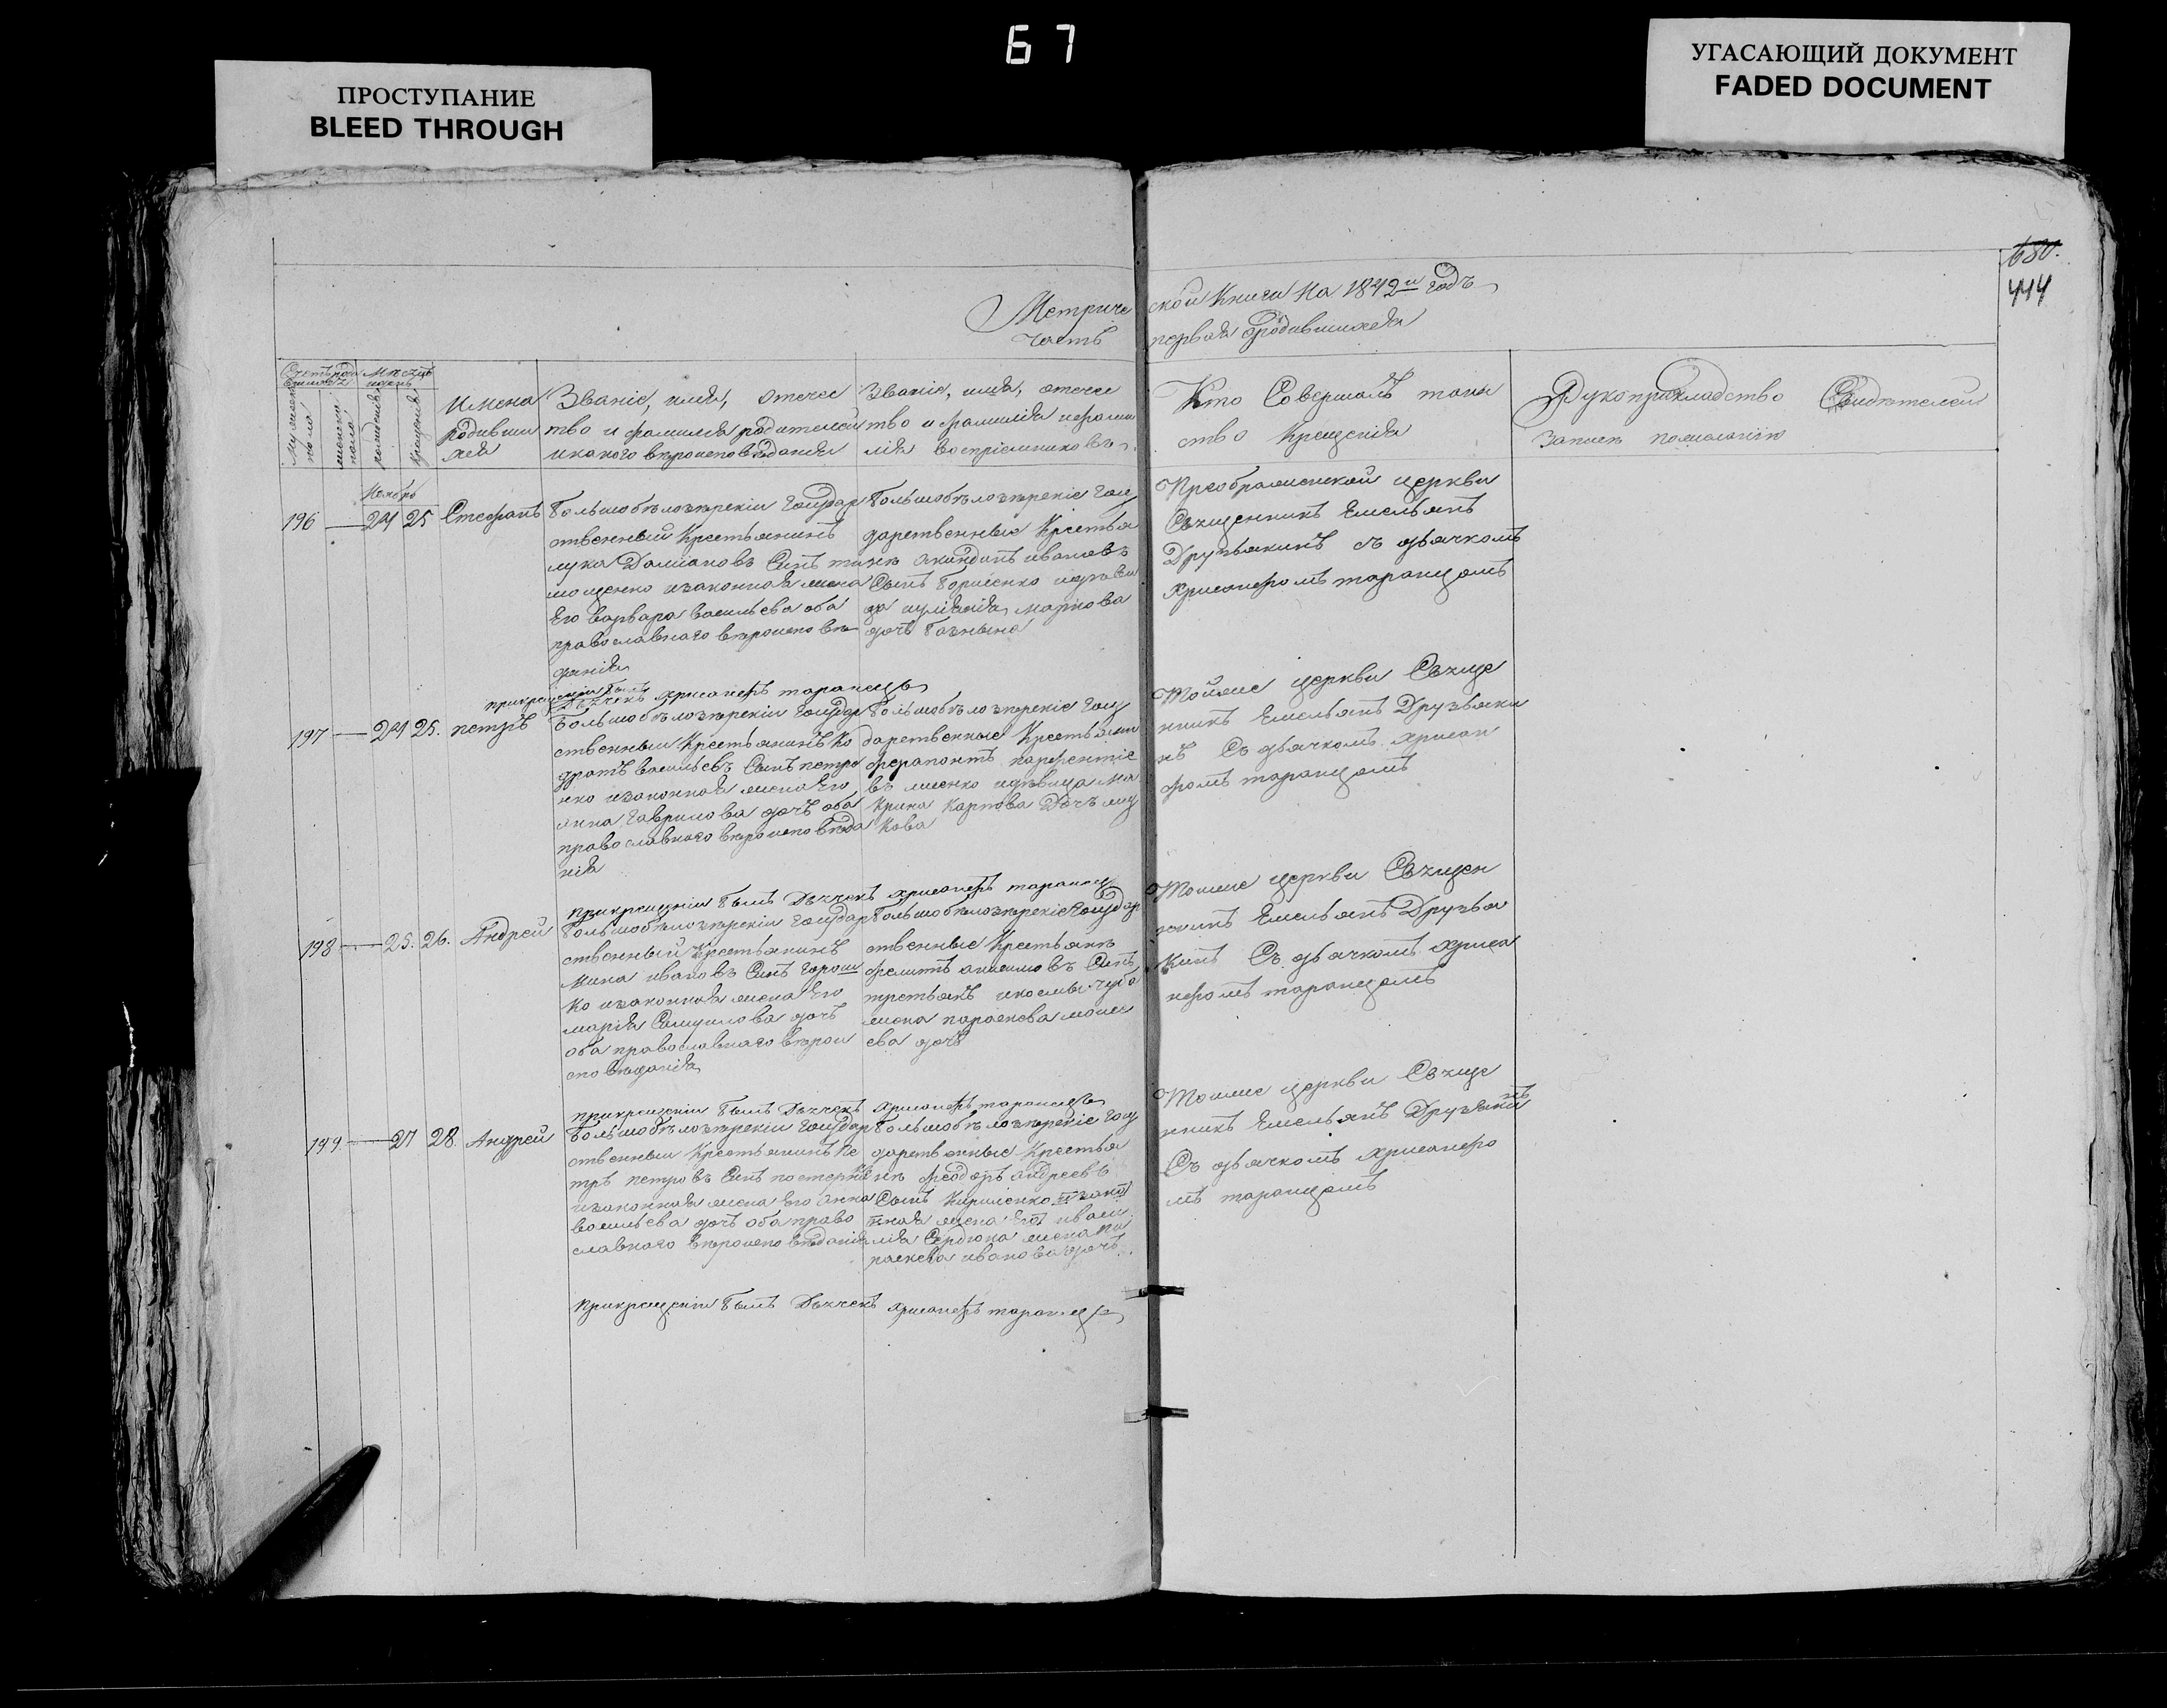 67
ПРОСТУПАНИЕ
BLEED THROUGH
УГАСАЮЩИЙ ДОКУМЕНТ
FADED DOCUMENT
680.
444
Метриче ской Книги На 1842й годъ
часть первая Ородившихся
Мѣсяцъ
Мужеска пола
женска пола
рожденія
крещенія
имена
родивши
хся
Званіе, имя, отечес
тво и фамилія родителей
икакого вѣроисповѣданія
Званіе, имя, отечес
тво и фамилія
воспріемниковъ
Кто Совершалъ таин
ство Крещенія
Рукоприкладство Свидѣтелей
записи пожеланію
Ноябрь
196 — 24 25 Стефанъ
Большобѣлозѣрскій Государ
ственный Крестьянинъ
лука Даміановъ Сынъ ти
мощенко изаконная жена
Его варвара васильева оба
православнаго вѣроисповѣ
данія
Большобѣлозѣрскіе Госу
дарственные Крестья
нъ иванов
Сынъ
маркова
дочь
Преображенской церкви
Священникъ Емельянъ
Друзьякинъ съ дьячкомъ
Хрисанфомъ таранцомъ
прикрещеніи былъ Дьячекъ Хрисанфъ таранецъ
197 — 24 25. петръ
Большобѣлозѣрскій Государ
ственный Крестьянинъ Ко
дратъ васильевъ Сынъ петре
нко изаконная жена Его
анна гаврилова дочь оба
православнаго вѣроисповѣда
нія
Большобѣлозѣрскіе Госу
дарственные Крестьяни
ферапонтъ
идѣвица Ма
крина Карпова Дочь
Тойже церкви Священ
никъ Емельянъ Друзьяки
нъ Съ дьячкомъ Хрисан
фомъ таранцомъ
прикрещеніи былъ Дьячекъ Хрисанфъ таранец
198 — 25. 26. Андрей
Большобѣлозѣрскій Государ
ственный Крестьянинъ
Мина ивановъ Сынъ
ко изаконная жена Его
марія Самуилова дочь
оба православнаго вѣрои
сповѣданія
Большобѣлозѣрскіе Государ
ственные Крестьянъ
Сынъ
третьякъ
жена параскева моисе
ева дочь
Тоиже церкви Священ
никъ Емельянъ Друзья
кинъ Съ дьячкомъ Хриса
нфомъ таранцомъ
прикрещеніи былъ Дьячекъ Хрисанфъ таранецъ
199 — 27 28. Андрей
Большобѣлозѣрскій Государ
ственный Крестьянинъ Пе
тръ петровъ Сынъ
изаконная жена Его анна
васильева дочь оба право
славнаго вѣроисповѣданія
Большобѣлозѣрскіе Госу
дарственные Крестья
нъ феодоръ андреевъ
Сынъ Кириленко
жена
Сердюка жена Па
раскева иванова дочь
Тоиже церкви Священ
никъ Емельянъ Друзьякинъ
Съ дьячкомъ Хрисанфо
мъ таранцомъ
Прикрещеніи былъ Дьячекъ Хрисанфъ таранецъ